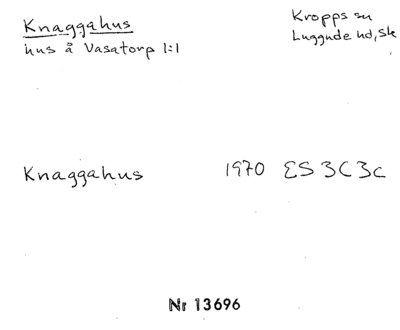 Knaggahus
hus å Vasatorp 1:1
Kropps sn
Luggude hd, Sk
Knaggahus 1970 ES 3C3c
Nr 13696